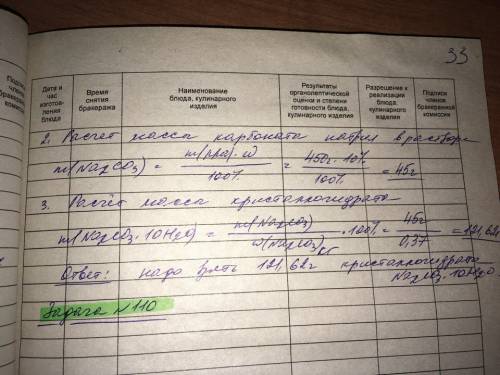 33
Дата и час изготов- ления блюда
Время снятия бракеража
Наименование блюда, кулинарного изделия
Результаты органолептической оценки и степени готовности блюда, кулинарного изделия
Разрешение к реализации блюда, кулинарного изделия
Подписи членов бракеражной комиссии
2. Расчет масса карбоната натрия в растворе
m(Na2CO3) = m(рра)·ω / 100% = 450г·10% / 100% = 45г
3. Расчёт масса кристаллогидрата
m(Na2CO3·10H2O) = m(Na2CO3) / ω(Na2CO3)кг ·100% = 45г / 0,37 = 121,62г
Ответ: надо взять 121,62г кристаллогидрата
Na2CO3·10H2O
Задача №110